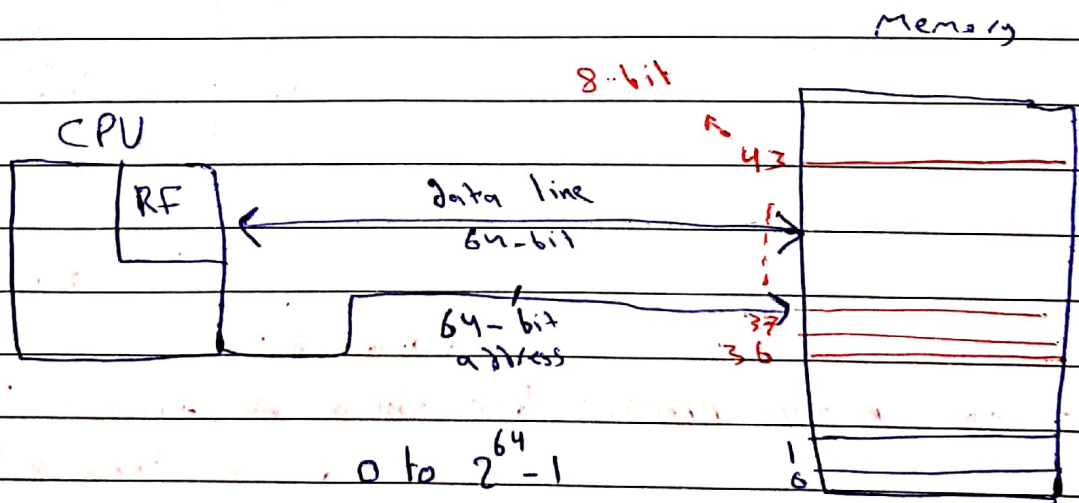 Memory
8-bit
CPU
43
RF
data line
64-bit
64-bit
address
37
36
1
0
0 to 2^64-1